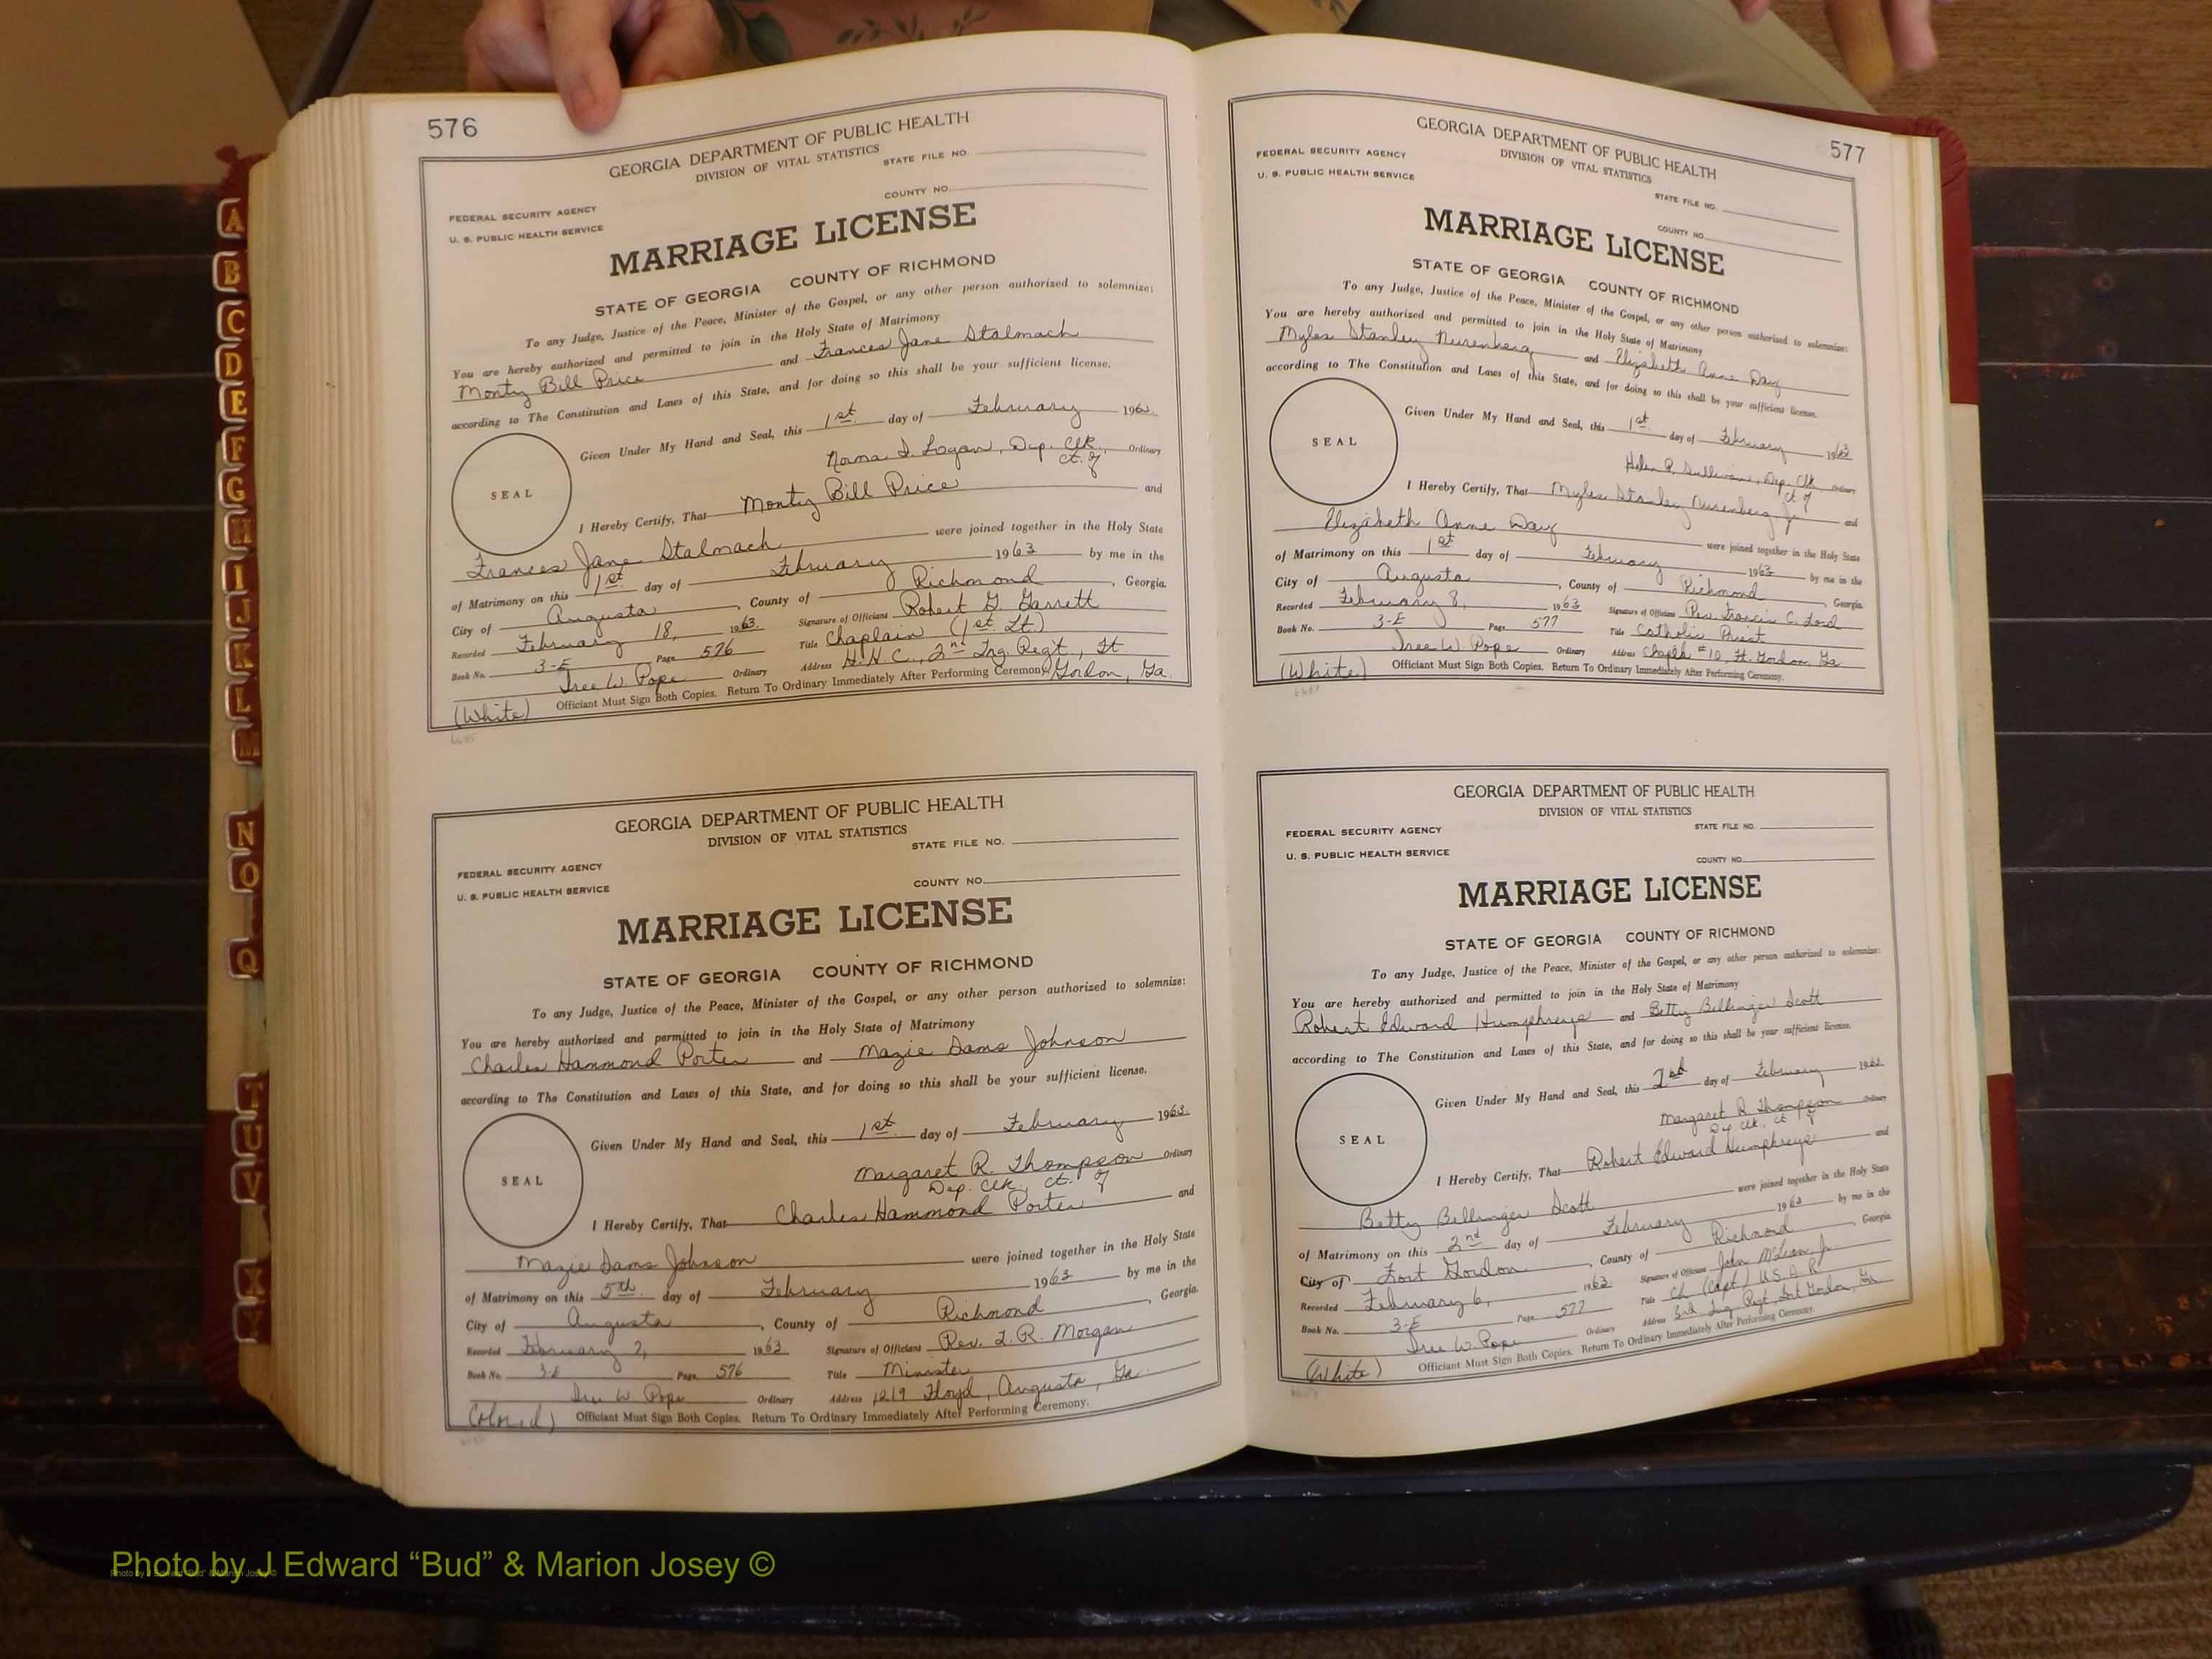 576
GEORGIA DEPARTMENT OF PUBLIC HEALTH
DIVISION OF VITAL STATISTICS
STATE FILE NO.
COUNTY NO.
FEDERAL SECURITY AGENCY
U. S. PUBLIC HEALTH SERVICE
MARRIAGE LICENSE
STATE OF GEORGIA COUNTY OF RICHMOND
To any Judge, Justice of the Peace, Minister of the Gospel, or any other person authorized to solemnize:
You are hereby authorized and permitted to join in the Holy State of Matrimony
Monty Bill Price and Frances Jane Stalmach
according to The Constitution and Laws of this State, and for doing so this shall be your sufficient license.
Given Under My Hand and Seal, this 1st day of February 1963
Norma I. Logan, Dep. Clk. Ordinary
Ct. of
SEAL
I Hereby Certify, That Monty Bill Price and
Frances Jane Stalmach were joined together in the Holy State
of Matrimony on this 1st day of February 1963 by me in the
City of Augusta, County of Richmond, Georgia.
Recorded February 18, 1963. Signature of Officiant Robert G. Garrett
Book No. 3-E Page 576 Title Chaplain (1st Lt.)
Tree W. Pope Ordinary Address H.H.C., 2nd Trg. Regt., Ft
Gordon, Ga.
(White) Officiant Must Sign Both Copies. Return To Ordinary Immediately After Performing Ceremony.
GEORGIA DEPARTMENT OF PUBLIC HEALTH
DIVISION OF VITAL STATISTICS
STATE FILE NO.
COUNTY NO.
FEDERAL SECURITY AGENCY
U. S. PUBLIC HEALTH SERVICE
MARRIAGE LICENSE
STATE OF GEORGIA COUNTY OF RICHMOND
To any Judge, Justice of the Peace, Minister of the Gospel, or any other person authorized to solemnize:
You are hereby authorized and permitted to join in the Holy State of Matrimony
Charles Hammond Porter and Mazie Johnson
according to The Constitution and Laws of this State, and for doing so this shall be your sufficient license.
Given Under My Hand and Seal, this 1st day of February 1963.
Margaret R. Thompson Ordinary
Dep. Clk. Ct. of
SEAL
I Hereby Certify, That Charles Hammond Porter and
Mazie Johnson were joined together in the Holy State
of Matrimony on this 5th day of February 1963 by me in the
City of Augusta, County of Richmond, Georgia.
Recorded February 1963 Signature of Officiant Rev. R. Morgan
Book No. 3-E Page 576 Title Minister
Tree W. Pope Ordinary Address 1219 Floyd, Augusta, Ga.
(Colored) Officiant Must Sign Both Copies. Return To Ordinary Immediately After Performing Ceremony.
577
GEORGIA DEPARTMENT OF PUBLIC HEALTH
DIVISION OF VITAL STATISTICS
FEDERAL SECURITY AGENCY
U. S. PUBLIC HEALTH SERVICE
STATE FILE NO.
COUNTY NO.
MARRIAGE LICENSE
STATE OF GEORGIA COUNTY OF RICHMOND
To any Judge, Justice of the Peace, Minister of the Gospel, or any other person authorized to solemnize:
You are hereby authorized and permitted to join in the Holy State of Matrimony
Myles Stanley Nurenberg and Elizabeth Anne Day
according to The Constitution and Laws of this State, and for doing so this shall be your sufficient license.
Given Under My Hand and Seal, this 1st day of February 1963
Helen R. Sullivan, Dep. Clk. Ordinary
Ct. of
SEAL
I Hereby Certify, That Myles Stanley Nurenberg Jr and
Elizabeth Anne Day were joined together in the Holy State
of Matrimony on this 1st day of February 1963 by me in the
City of Augusta, County of Richmond, Georgia.
Recorded February 8, 1963 Signature of Officiant Rev. Francis C. Lord
Book No. 3-E Page 577 Title Catholic Priest
Tree W. Pope Ordinary Address Chapel #10, Ft. Gordon, Ga
(White) Officiant Must Sign Both Copies. Return To Ordinary Immediately After Performing Ceremony.
GEORGIA DEPARTMENT OF PUBLIC HEALTH
DIVISION OF VITAL STATISTICS
FEDERAL SECURITY AGENCY
STATE FILE NO.
U. S. PUBLIC HEALTH SERVICE
COUNTY NO.
MARRIAGE LICENSE
STATE OF GEORGIA COUNTY OF RICHMOND
To any Judge, Justice of the Peace, Minister of the Gospel, or any other person authorized to solemnize:
You are hereby authorized and permitted to join in the Holy State of Matrimony
Robert Edward Humphreys and Betty Bellinger Scott
according to The Constitution and Laws of this State, and for doing so this shall be your sufficient license.
Given Under My Hand and Seal, this 2nd day of February 1963
Margaret R. Thompson Ordinary
Dep Clk. Ct of
SEAL
I Hereby Certify, That Robert Edward Humphreys and
Betty Bellinger Scott were joined together in the Holy State
of Matrimony on this 2nd day of February 1963 by me in the
City of Fort Gordon, County of Richmond, Georgia.
Recorded February 6, 1963. Signature of Officiant John McLean, Jr.
Book No. 3-E Page 577 Title Ch (Capt) U.S.A.R
Tree W. Pope Ordinary Address 3rd Trg Regt, Fort Gordon, Ga
(White) Officiant Must Sign Both Copies. Return To Ordinary Immediately After Performing Ceremony.
A
B
C
D
E
F
G
H
I
J
K
L
M
N
O
Q
T
U
V
X
Y
Photo by J Edward “Bud” & Marion Josey ©
Photo by J Edward "Bud" & Marion Josey ©